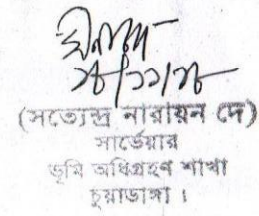 ২৮/১১/২৮
(সত্যেন্দ্র নারায়ন দে)
সার্ভেয়ার
ভূমি অধিগ্রহণ শাখা
চুয়াডাঙ্গা।